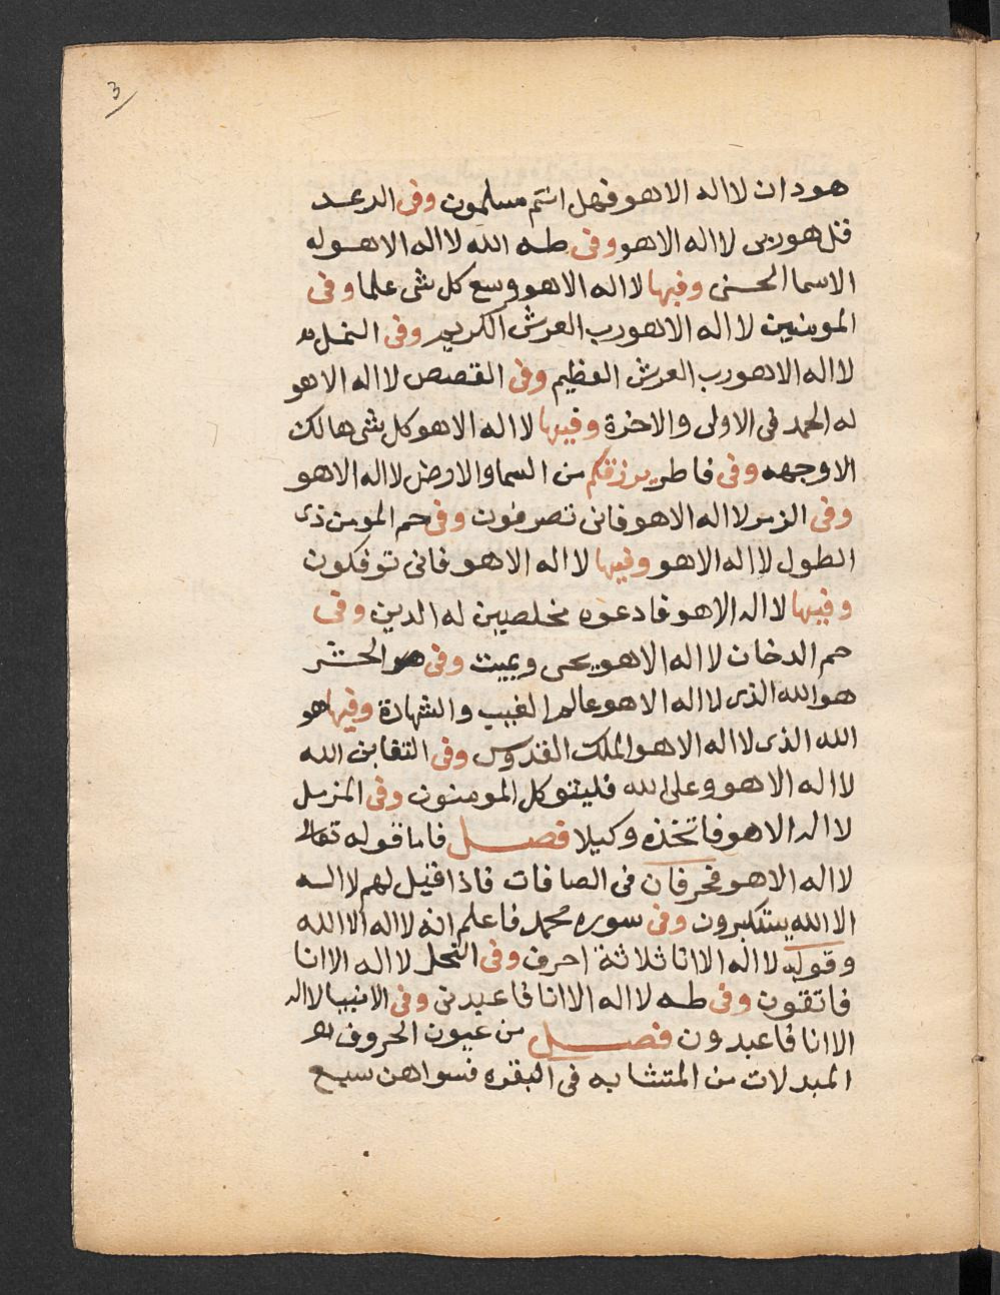 3
هود ان لا اله الا هو فهل انتم مسلمون وفى الرعد
قل هو ربى لا اله الا هو وفى طه الله لا اله الا هو له
الاسما الحسنى وفيها لا اله الا هو وسع كل شى علما وفى
المومنين لا اله الا هو رب العرش الكريم وفى النمل
لا اله الا هو رب العرش العظيم وفى القصص لا اله الا هو
له الحمد فى الاولى والاخرة وفيها لا اله الا هو كل شى هالك
الا وجهه وفى فاطر يرزقكم من السما والارض لا اله الا هو
وفى الزمر لا اله الا هو فانى تصرفون وفى حم المومن ذى
الطول لا اله الا هو وفيها لا اله الا هو فانى توفكون
وفيها لا اله الا هو فادعوه مخلصين له الدين وفى
حم الدخان لا اله الا هو يحى ويميت وفى الحشر
هو الله الذى لا اله الا هو عالم الغيب والشهادة وفيها هو
الله الذى لا اله الا هو الملك القدوس وفى التغابن الله
لا اله الا هو وعلى الله فليتوكل المومنون وفى المزمل
لا اله الا هو فاتخذه وكيلا فصل فاما قوله تعالى
لا اله الا هو فحرفان فى الصافات فاذا قيل لهم لا اله
الا الله يستكبرون وفى سوره محمد فاعلم انه لا اله الا الله
وقوله لا اله الا انا ثلاثة احرف وفى النحل لا اله الا انا
فاتقون وفى طه لا اله الا انا فاعبدنى وفى الانبيا لا اله
الا انا فاعبدون فصل من عيون الحروف
المبدلات من المتشابه فى البقره فسواهن سبع